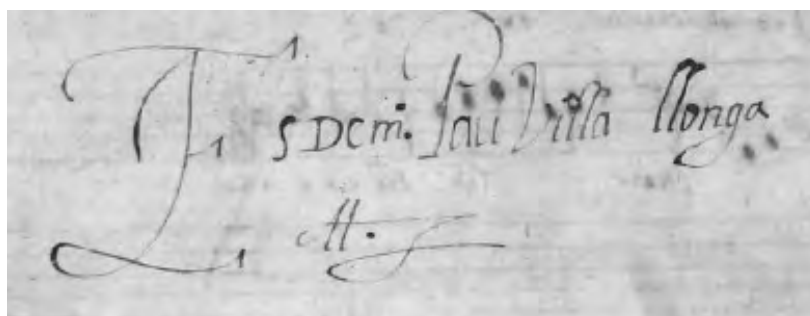 Es DC m.º Pau Villa llonga
tt.